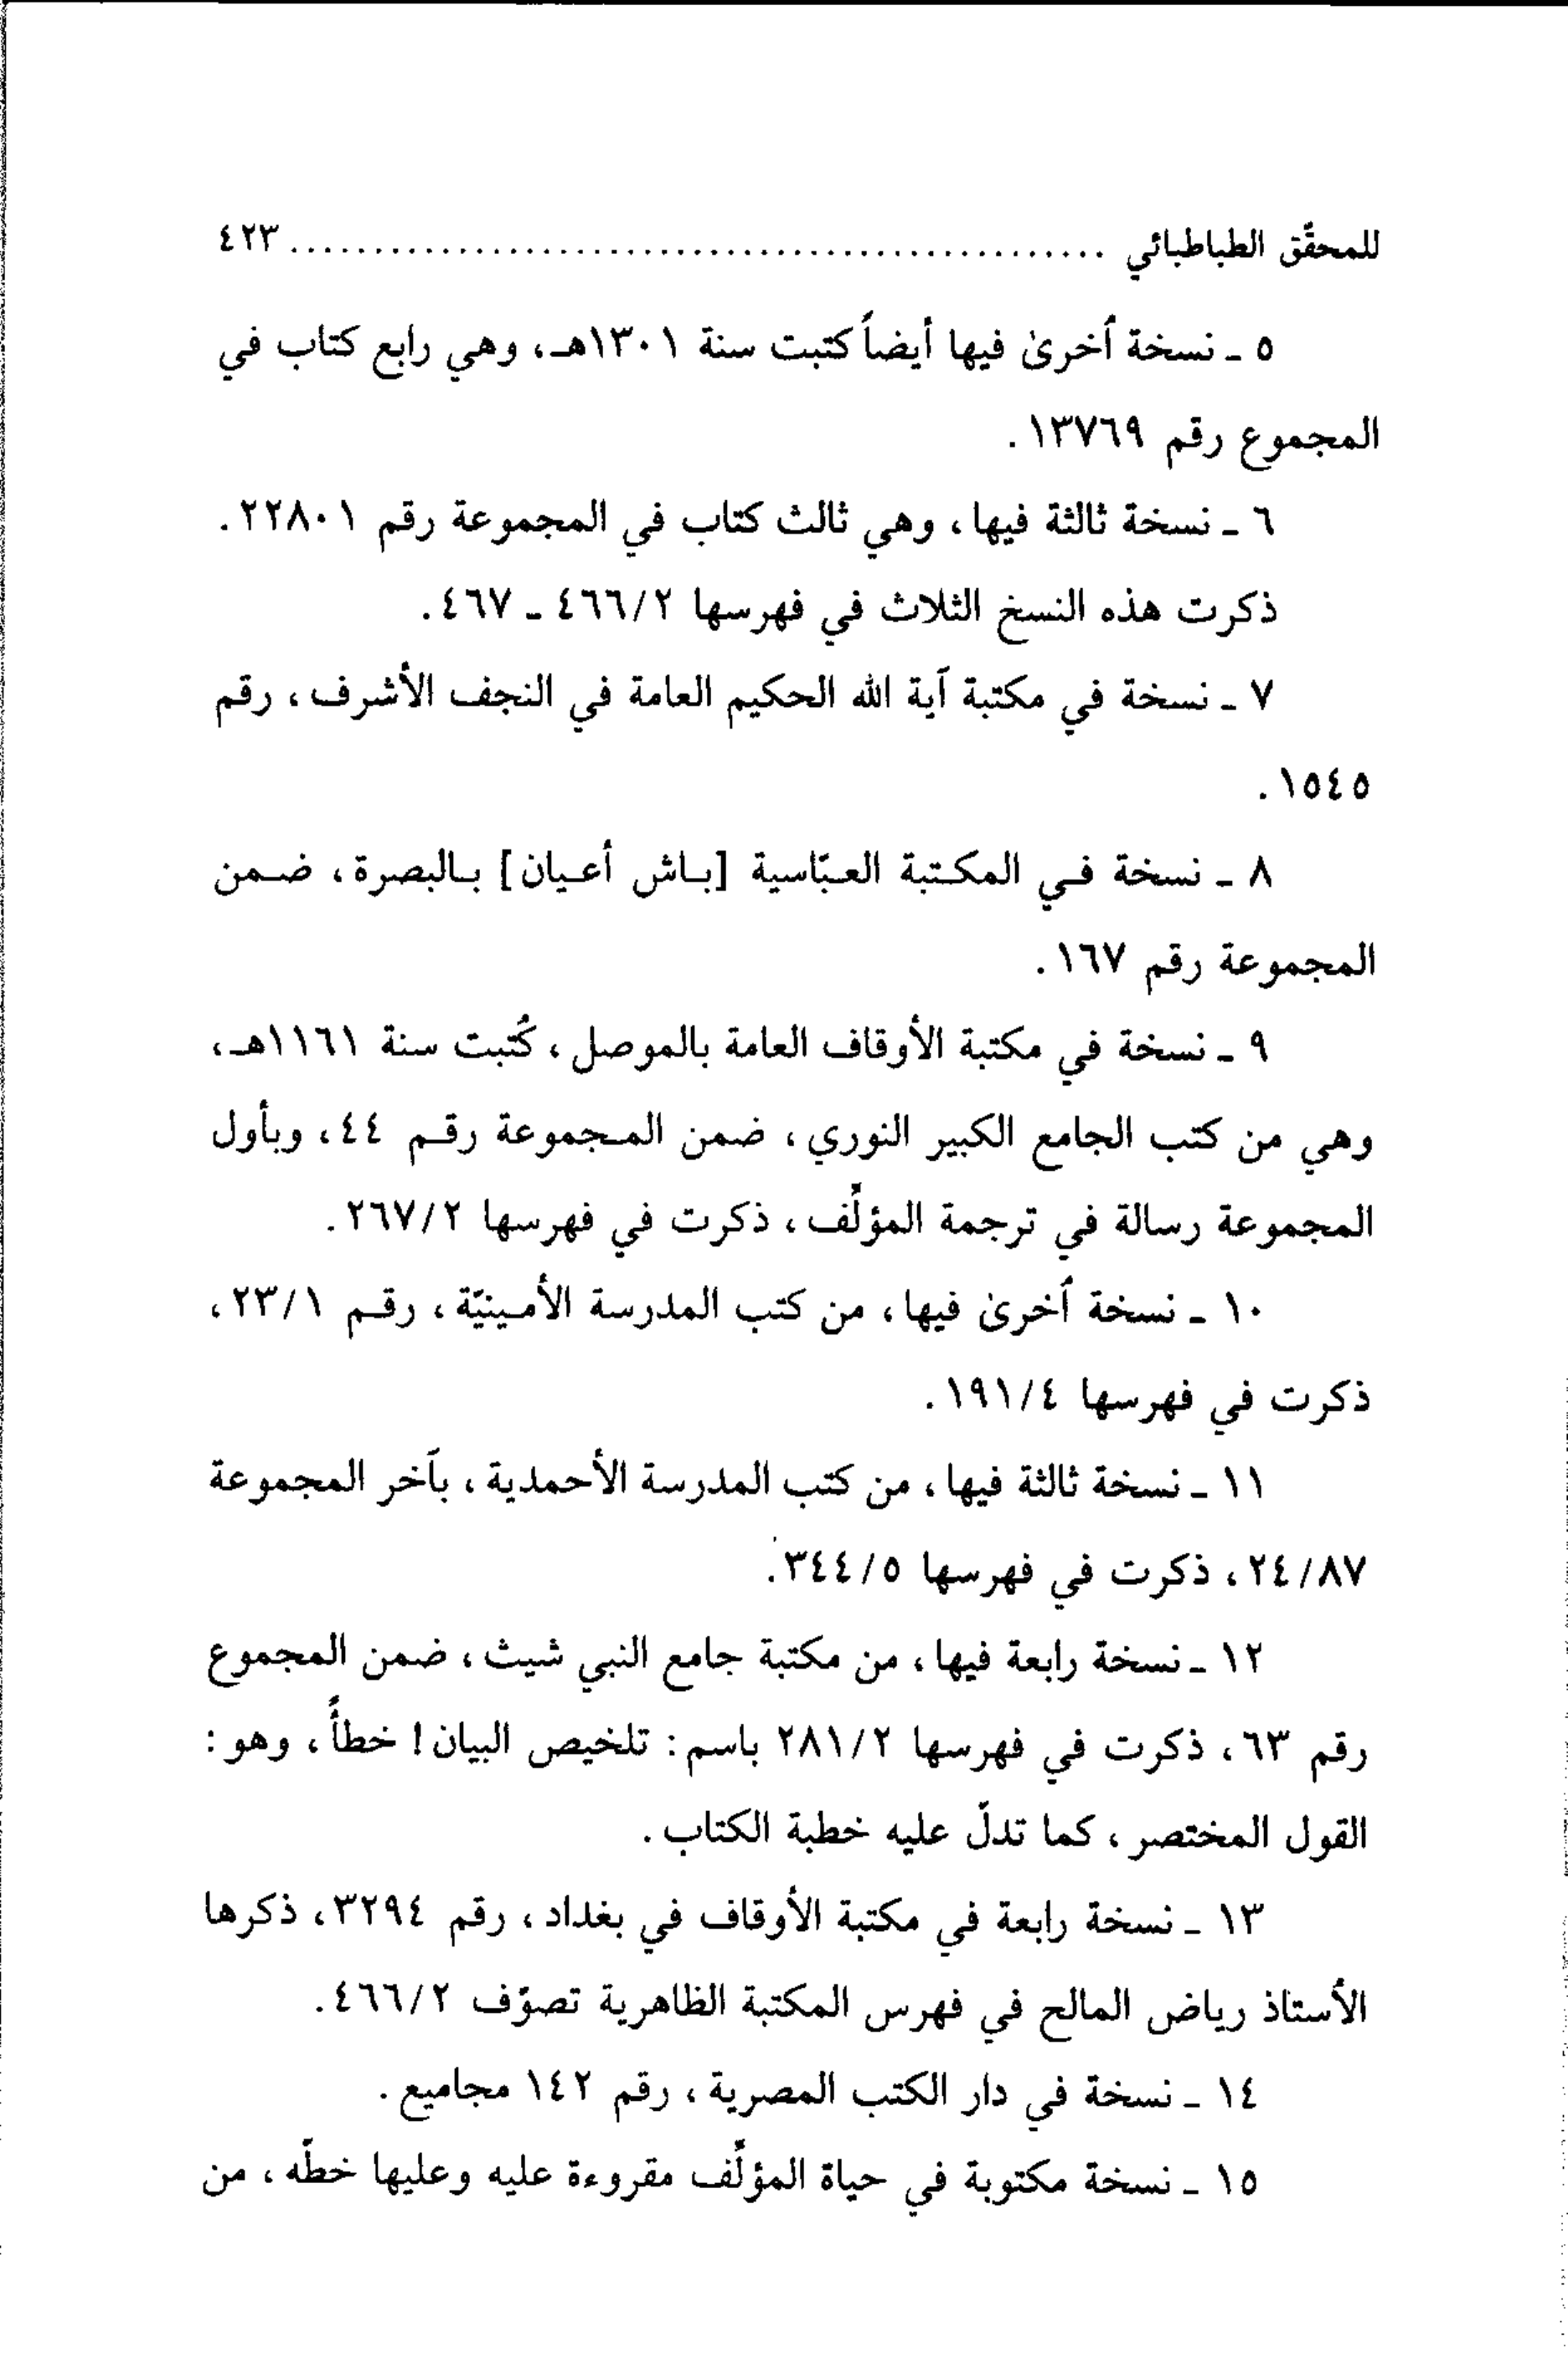 للمحقّق الطباطبائي ................................................ ٤٢٣
٥ ـ نسخة أُخرىٰ فيها أيضاً كتبت سنة ١٣٠١هـ، وهي رابع كتاب في
المجموع رقم ١٣٧٦٩.
٦ ـ نسخة ثالثة فيها، وهي ثالث كتاب في المجموعة رقم ٢٢٨٠١.
ذكرت هذه النسخ الثلاث في فهرسها ٤٦٦/٢ ـ ٤٦٧.
٧ ـ نسخة في مكتبة آية الله الحكيم العامة في النجف الأشرف، رقم
١٥٤٥.
٨ ـ نسخة فـي المكـتبة العـبّاسية [بـاش أعـيان] بـالبصرة، ضـمن
المجموعة رقم ١٦٧.
٩ ـ نسخة في مكتبة الأوقاف العامة بالموصل، كُتبت سنة ١١٦١هـ،
وهي من كتب الجامع الكبير النوري، ضمن المـجموعة رقـم ٤٤، وبأول
المجموعة رسالة في ترجمة المؤلِّف، ذكرت في فهرسها ٢٦٧/٢.
١٠ ـ نسخة أُخرىٰ فيها، من كتب المدرسة الأمـينيّة، رقـم ٢٣/١،
ذكرت في فهرسها ١٩١/٤.
١١ ـ نسخة ثالثة فيها، من كتب المدرسة الأحمدية، بآخر المجموعة
٢٤/٨٧، ذكرت في فهرسها ٣٤٤/٥.
١٢ ـ نسخة رابعة فيها، من مكتبة جامع النبي شيث، ضمن المجموع
رقم ٦٣، ذكرت في فهرسها ٢٨١/٢ باسم: تلخيص البيان! خطأً، وهو:
القول المختصر، كما تدلّ عليه خطبة الكتاب.
١٣ ـ نسخة رابعة في مكتبة الأوقاف في بغداد، رقم ٣٢٩٤، ذكرها
الأستاذ رياض المالح في فهرس المكتبة الظاهرية تصوّف ٤٦٦/٢.
١٤ ـ نسخة في دار الكتب المصرية، رقم ١٤٢ مجاميع.
١٥ ـ نسخة مكتوبة في حياة المؤلِّف مقروءة عليه وعليها خطّه، من